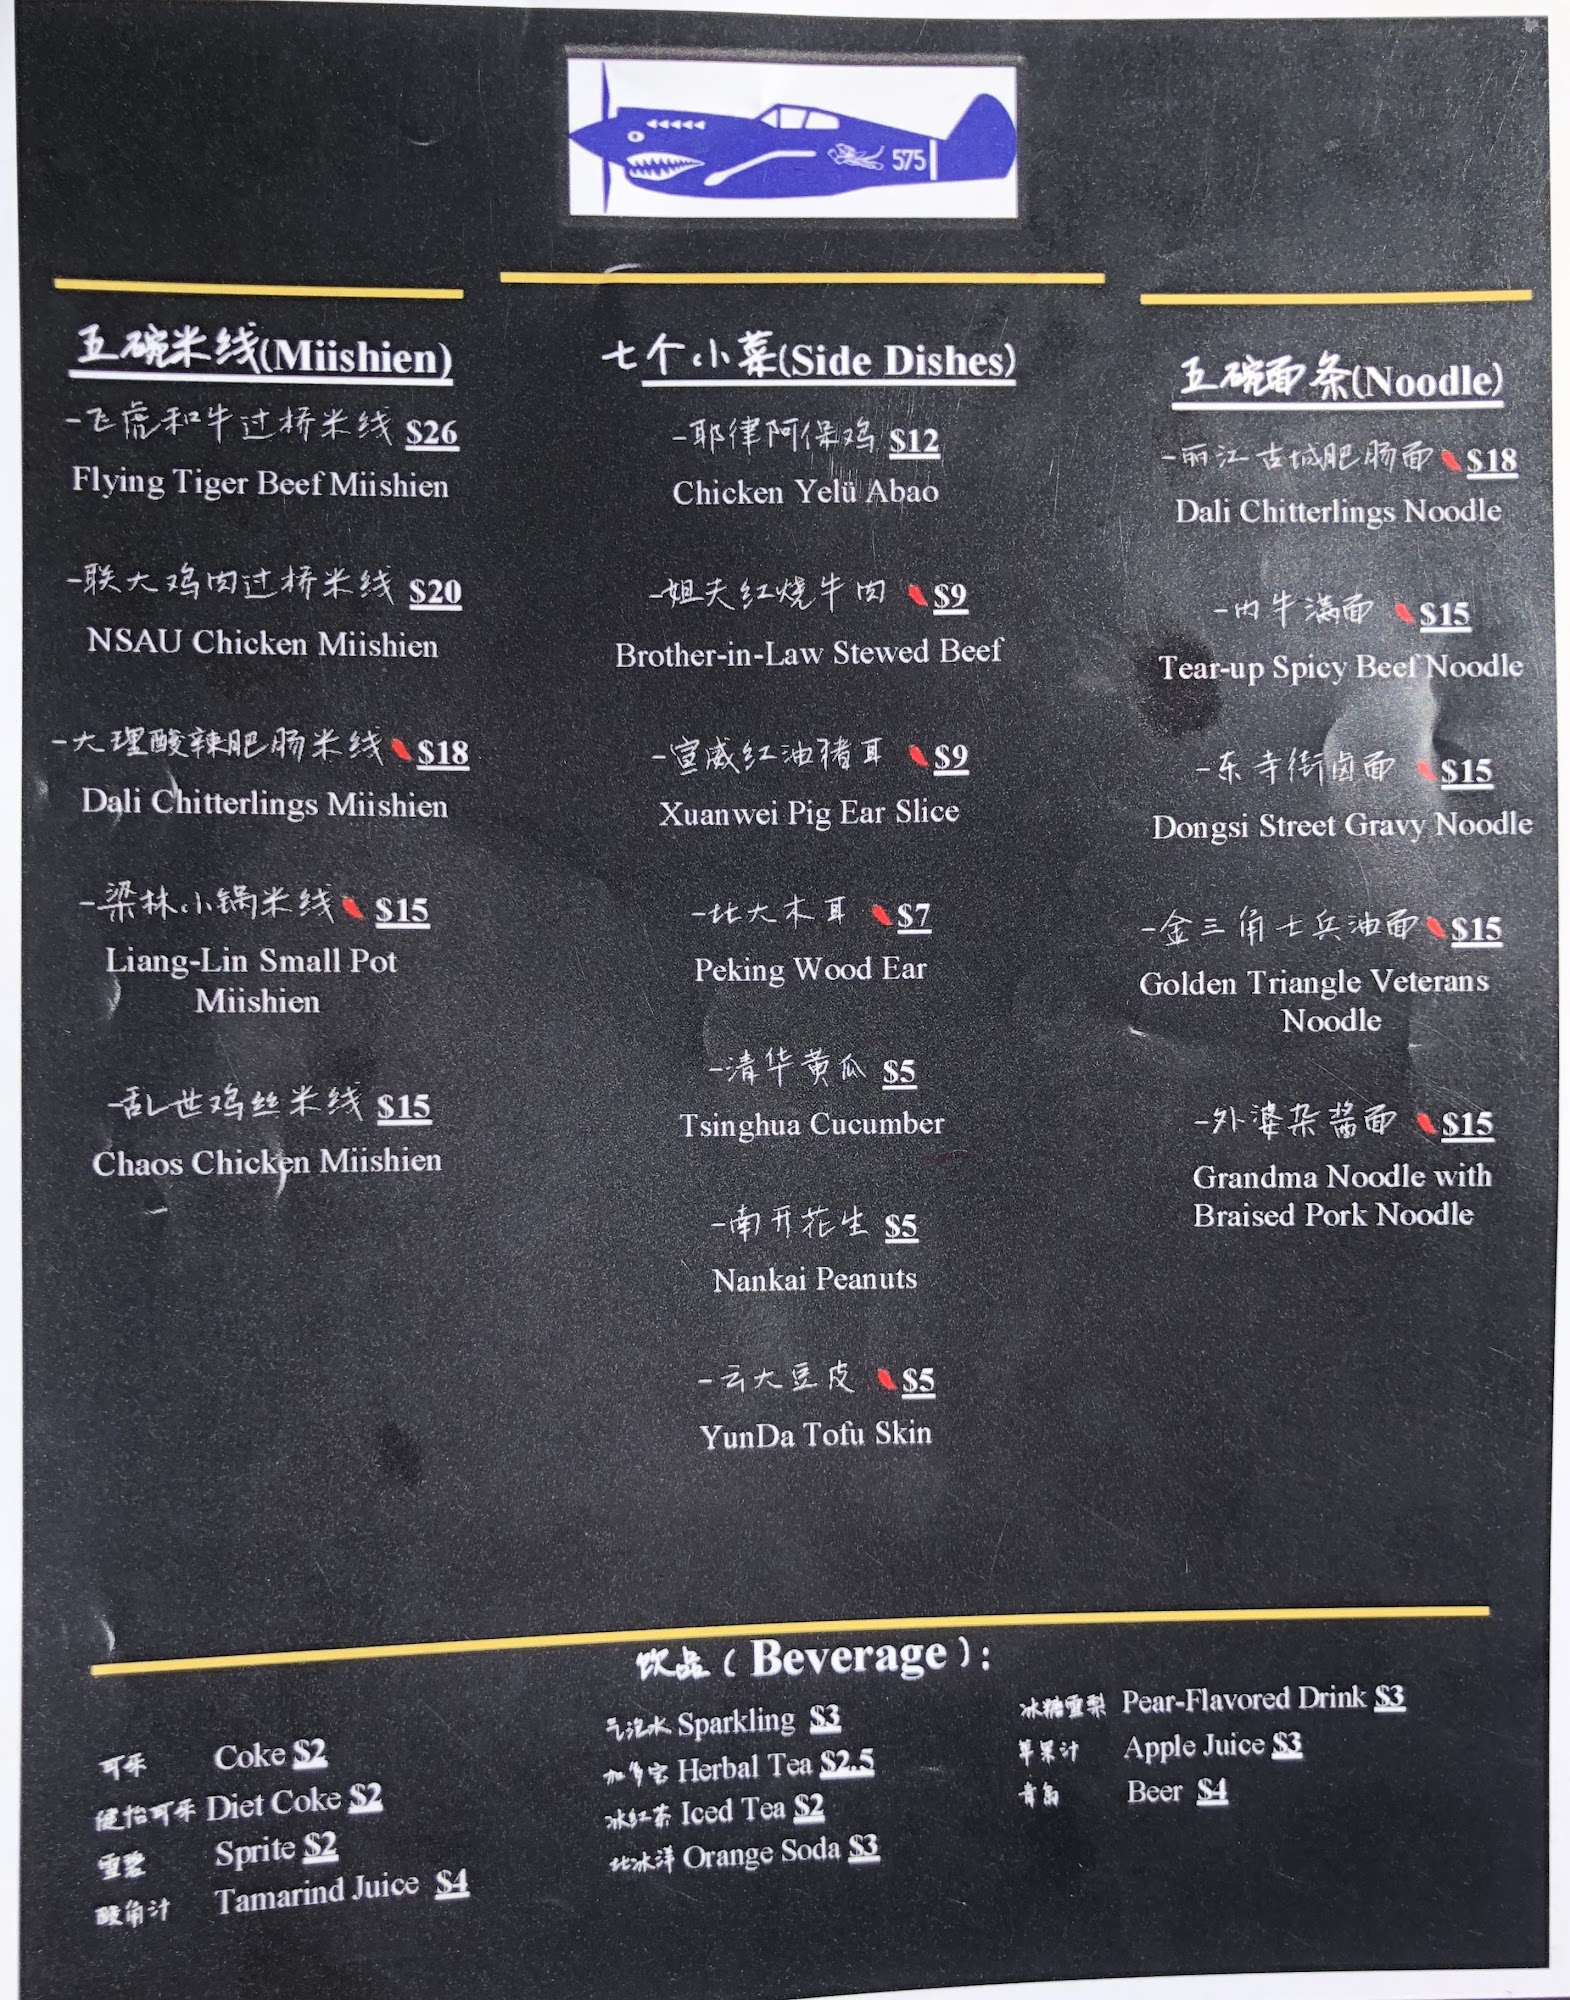 575
五碗米线(Miishien)
-飞虎和牛过桥米线 $26
Flying Tiger Beef Miishien
-联大鸡肉过桥米线 $20
NSAU Chicken Miishien
-大理酸辣肥肠米线 $18
Dali Chitterlings Miishien
-梁林小锅米线 $15
Liang-Lin Small Pot
Miishien
-乱世鸡丝米线 $15
Chaos Chicken Miishien
七个小菜(Side Dishes)
-耶律阿保鸡 $12
Chicken Yelü Abao
-姐夫红烧牛肉 $9
Brother-in-Law Stewed Beef
-宣威红油猪耳 $9
Xuanwei Pig Ear Slice
-北大木耳 $7
Peking Wood Ear
-清华黄瓜 $5
Tsinghua Cucumber
-南开花生 $5
Nankai Peanuts
-云大豆皮 $5
YunDa Tofu Skin
五碗面条(Noodle)
-丽江古城肥肠面 $18
Dali Chitterlings Noodle
-内牛满面 $15
Tear-up Spicy Beef Noodle
-东寺街卤面 $15
Dongsi Street Gravy Noodle
-金三角士兵油面 $15
Golden Triangle Veterans
Noodle
-外婆杂酱面 $15
Grandma Noodle with
Braised Pork Noodle
饮品 ( Beverage ):
可乐 Coke $2
健怡可乐 Diet Coke $2
雪碧 Sprite $2
酸角汁 Tamarind Juice $4
气泡水 Sparkling $3
加多宝 Herbal Tea $2.5
冰红茶 Iced Tea $2
北冰洋 Orange Soda $3
冰糖雪梨 Pear-Flavored Drink $3
苹果汁 Apple Juice $3
青岛 Beer $4